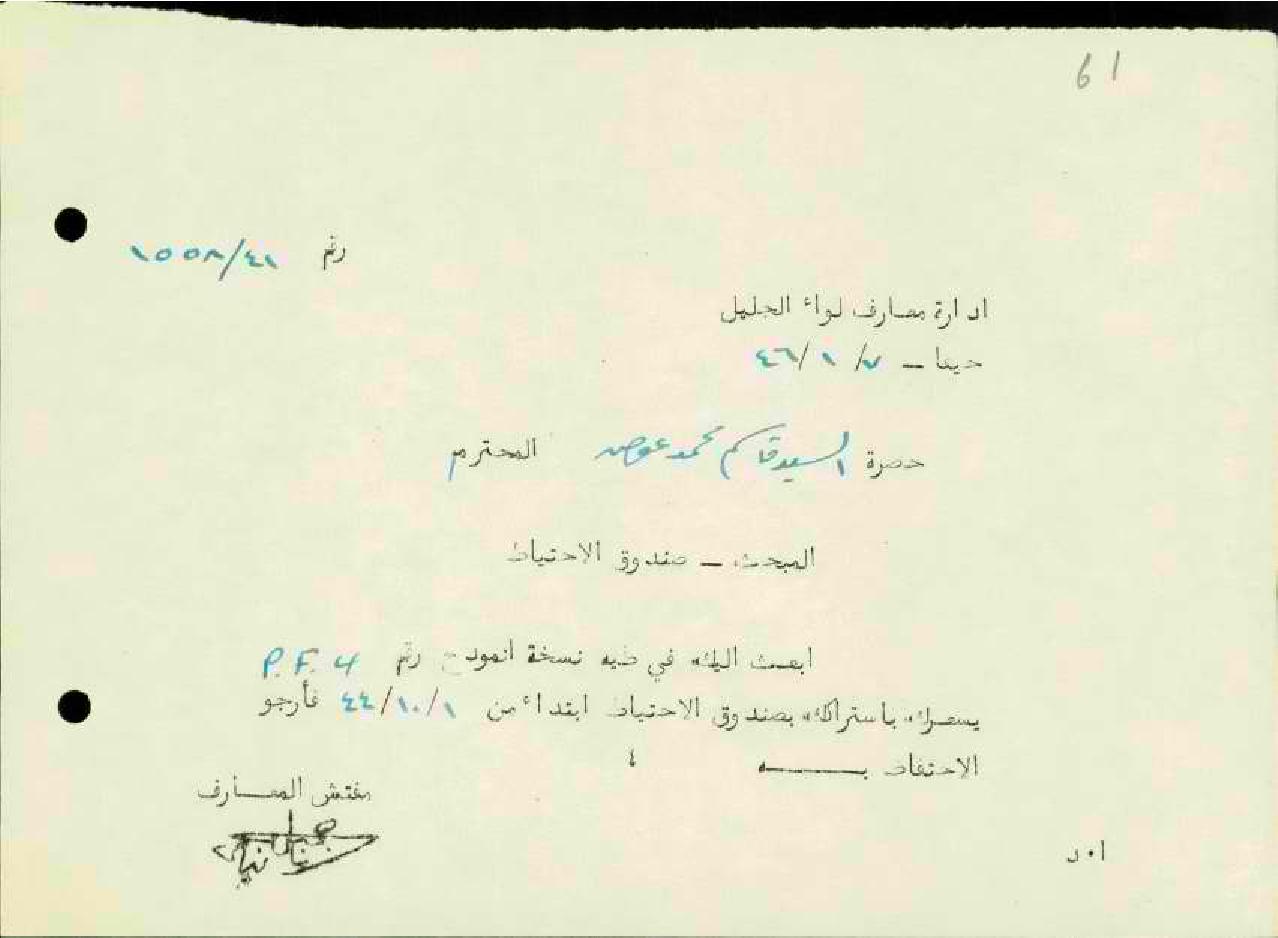 61
رقم ١٥٥٨/٤١
ادارة معارف لواء الجليل
حيفا – ٧/ ١ /٤٦
حضرة السيد قاسم محمد عوض المحترم
المبحث – صندوق الاحتياط
ابعث اليك في طيه نسخة انموذج رقم P.F. 4
يشعرك باشتراكك بصندوق الاحتياط ابتداء من ٤٤/١٠/١ فأرجو
الاحتفاظ بـــه ٤
مفتش المعارف
ا٠د